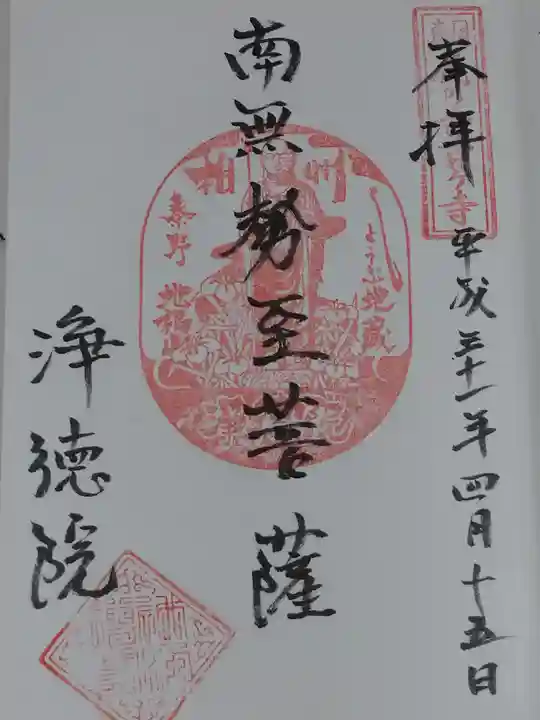 奉拝
平成三十一年四月十五日
南無勢至菩薩
相州
秦野
しょうぶ地蔵
浄徳院